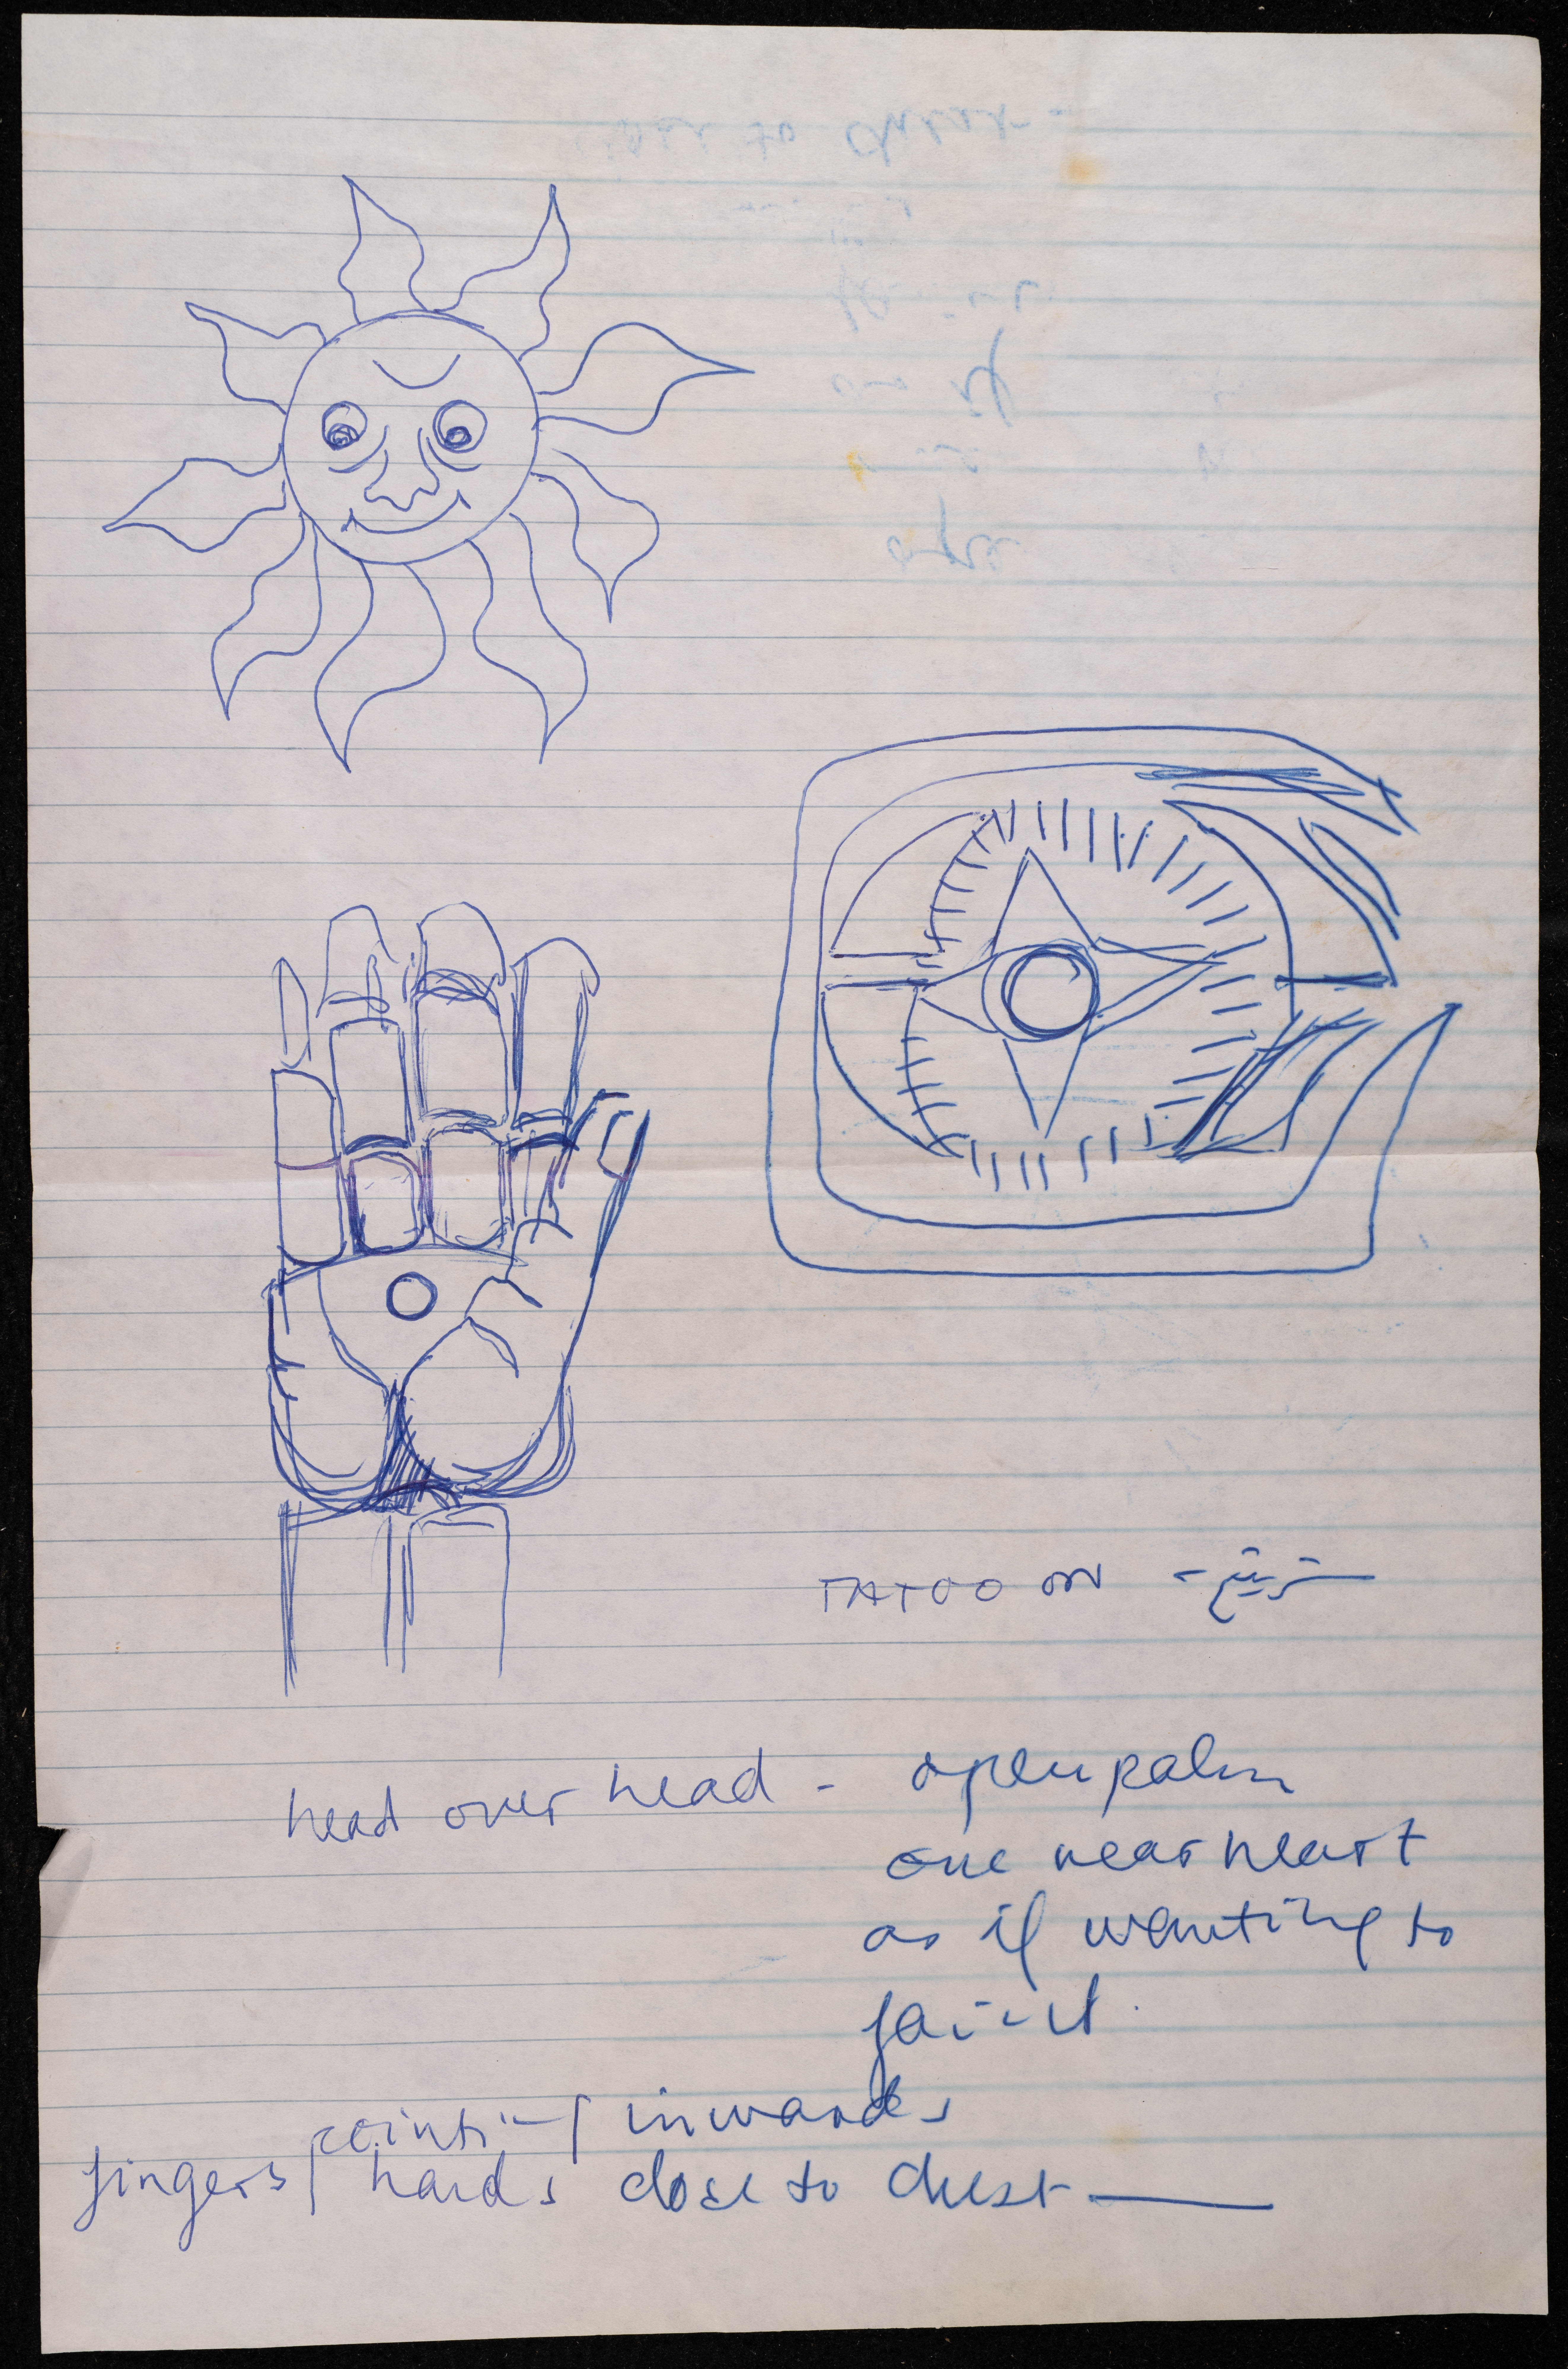 TATOO ON -
head over head - open palm
one near heart
as if wanting to
faint.
pointing inwards
fingers / hands close to chest